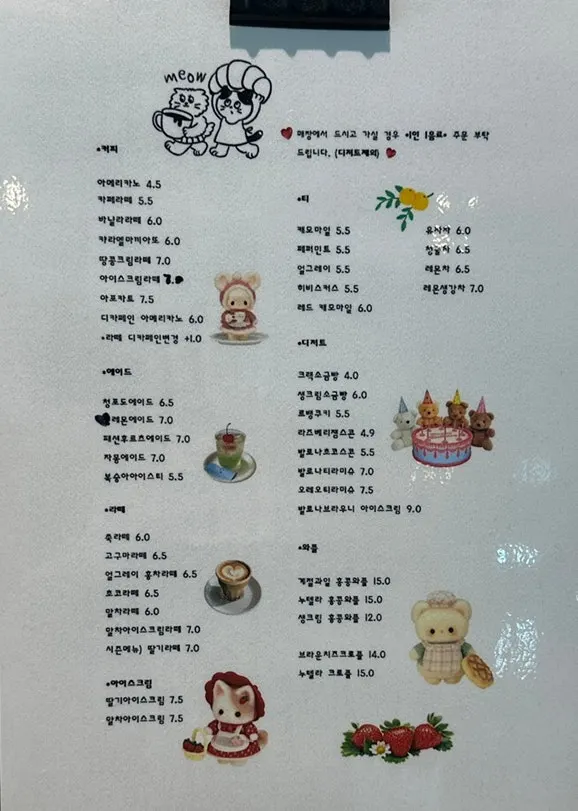 meow
매장에서 드시고 가실 경우 *1인 1음료* 주문 부탁
드립니다. (디저트제외)
*커피
아메리카노 4.5
카페라떼 5.5
바닐라라떼 6.0
카라멜마끼아또 6.0
땅콩크림라떼 7.0
아이스크림라떼 7.0
아포카토 7.5
디카페인 아메리카노 6.0
*라떼 디카페인변경 +1.0
*에이드
청포도에이드 6.5
레몬에이드 7.0
패션후르츠에이드 7.0
자몽에이드 7.0
복숭아아이스티 5.5
*라떼
쑥라떼 6.0
고구마라떼 6.5
얼그레이 홍차라떼 6.5
초코라떼 6.5
말차라떼 6.0
말차아이스크림라떼 7.0
시즌메뉴) 딸기라떼 7.0
*아이스크림
딸기아이스크림 7.5
말차아이스크림 7.5
*티
캐모마일 5.5
페퍼민트 5.5
얼그레이 5.5
히비스커스 5.5
레드 캐모마일 6.0
유자차 6.0
청귤차 6.5
레몬차 6.5
레몬생강차 7.0
*디저트
크랙소금빵 4.0
생크림소금빵 6.0
르뱅쿠키 5.5
라즈베리잼스콘 4.9
발로나초코스콘 5.5
발로나티라미슈 7.0
오레오티라미슈 7.5
발로나브라우니 아이스크림 9.0
*와플
계절과일 홍콩와플 15.0
누텔라 홍콩와플 15.0
생크림 홍콩와플 12.0
브라운치즈크로플 14.0
누텔라 크로플 15.0